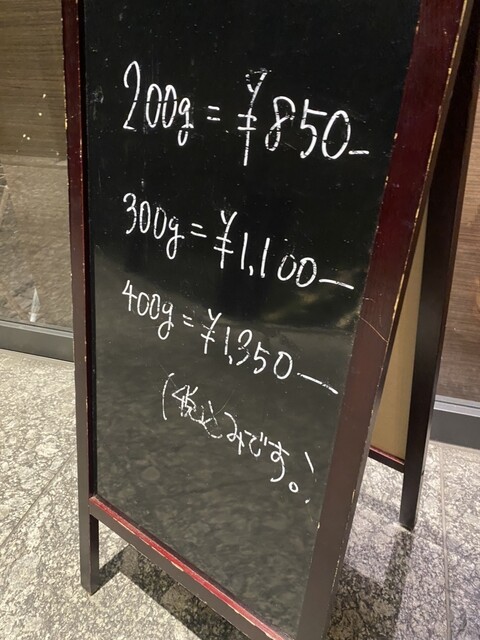 200g = ¥850-
300g = ¥1,100-
400g = ¥1,350-
(税込みです。)